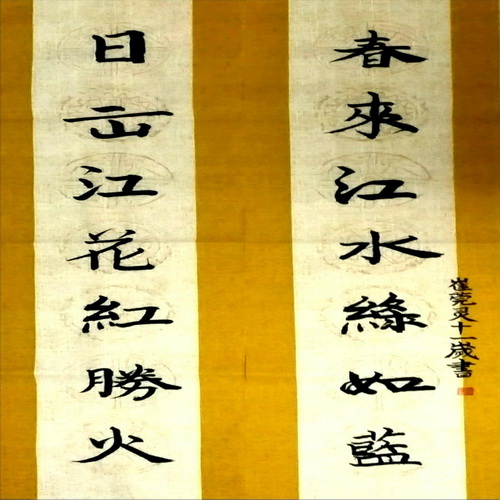 日出江花紅勝火
春來江水綠如藍
崔莞灵十一歲書